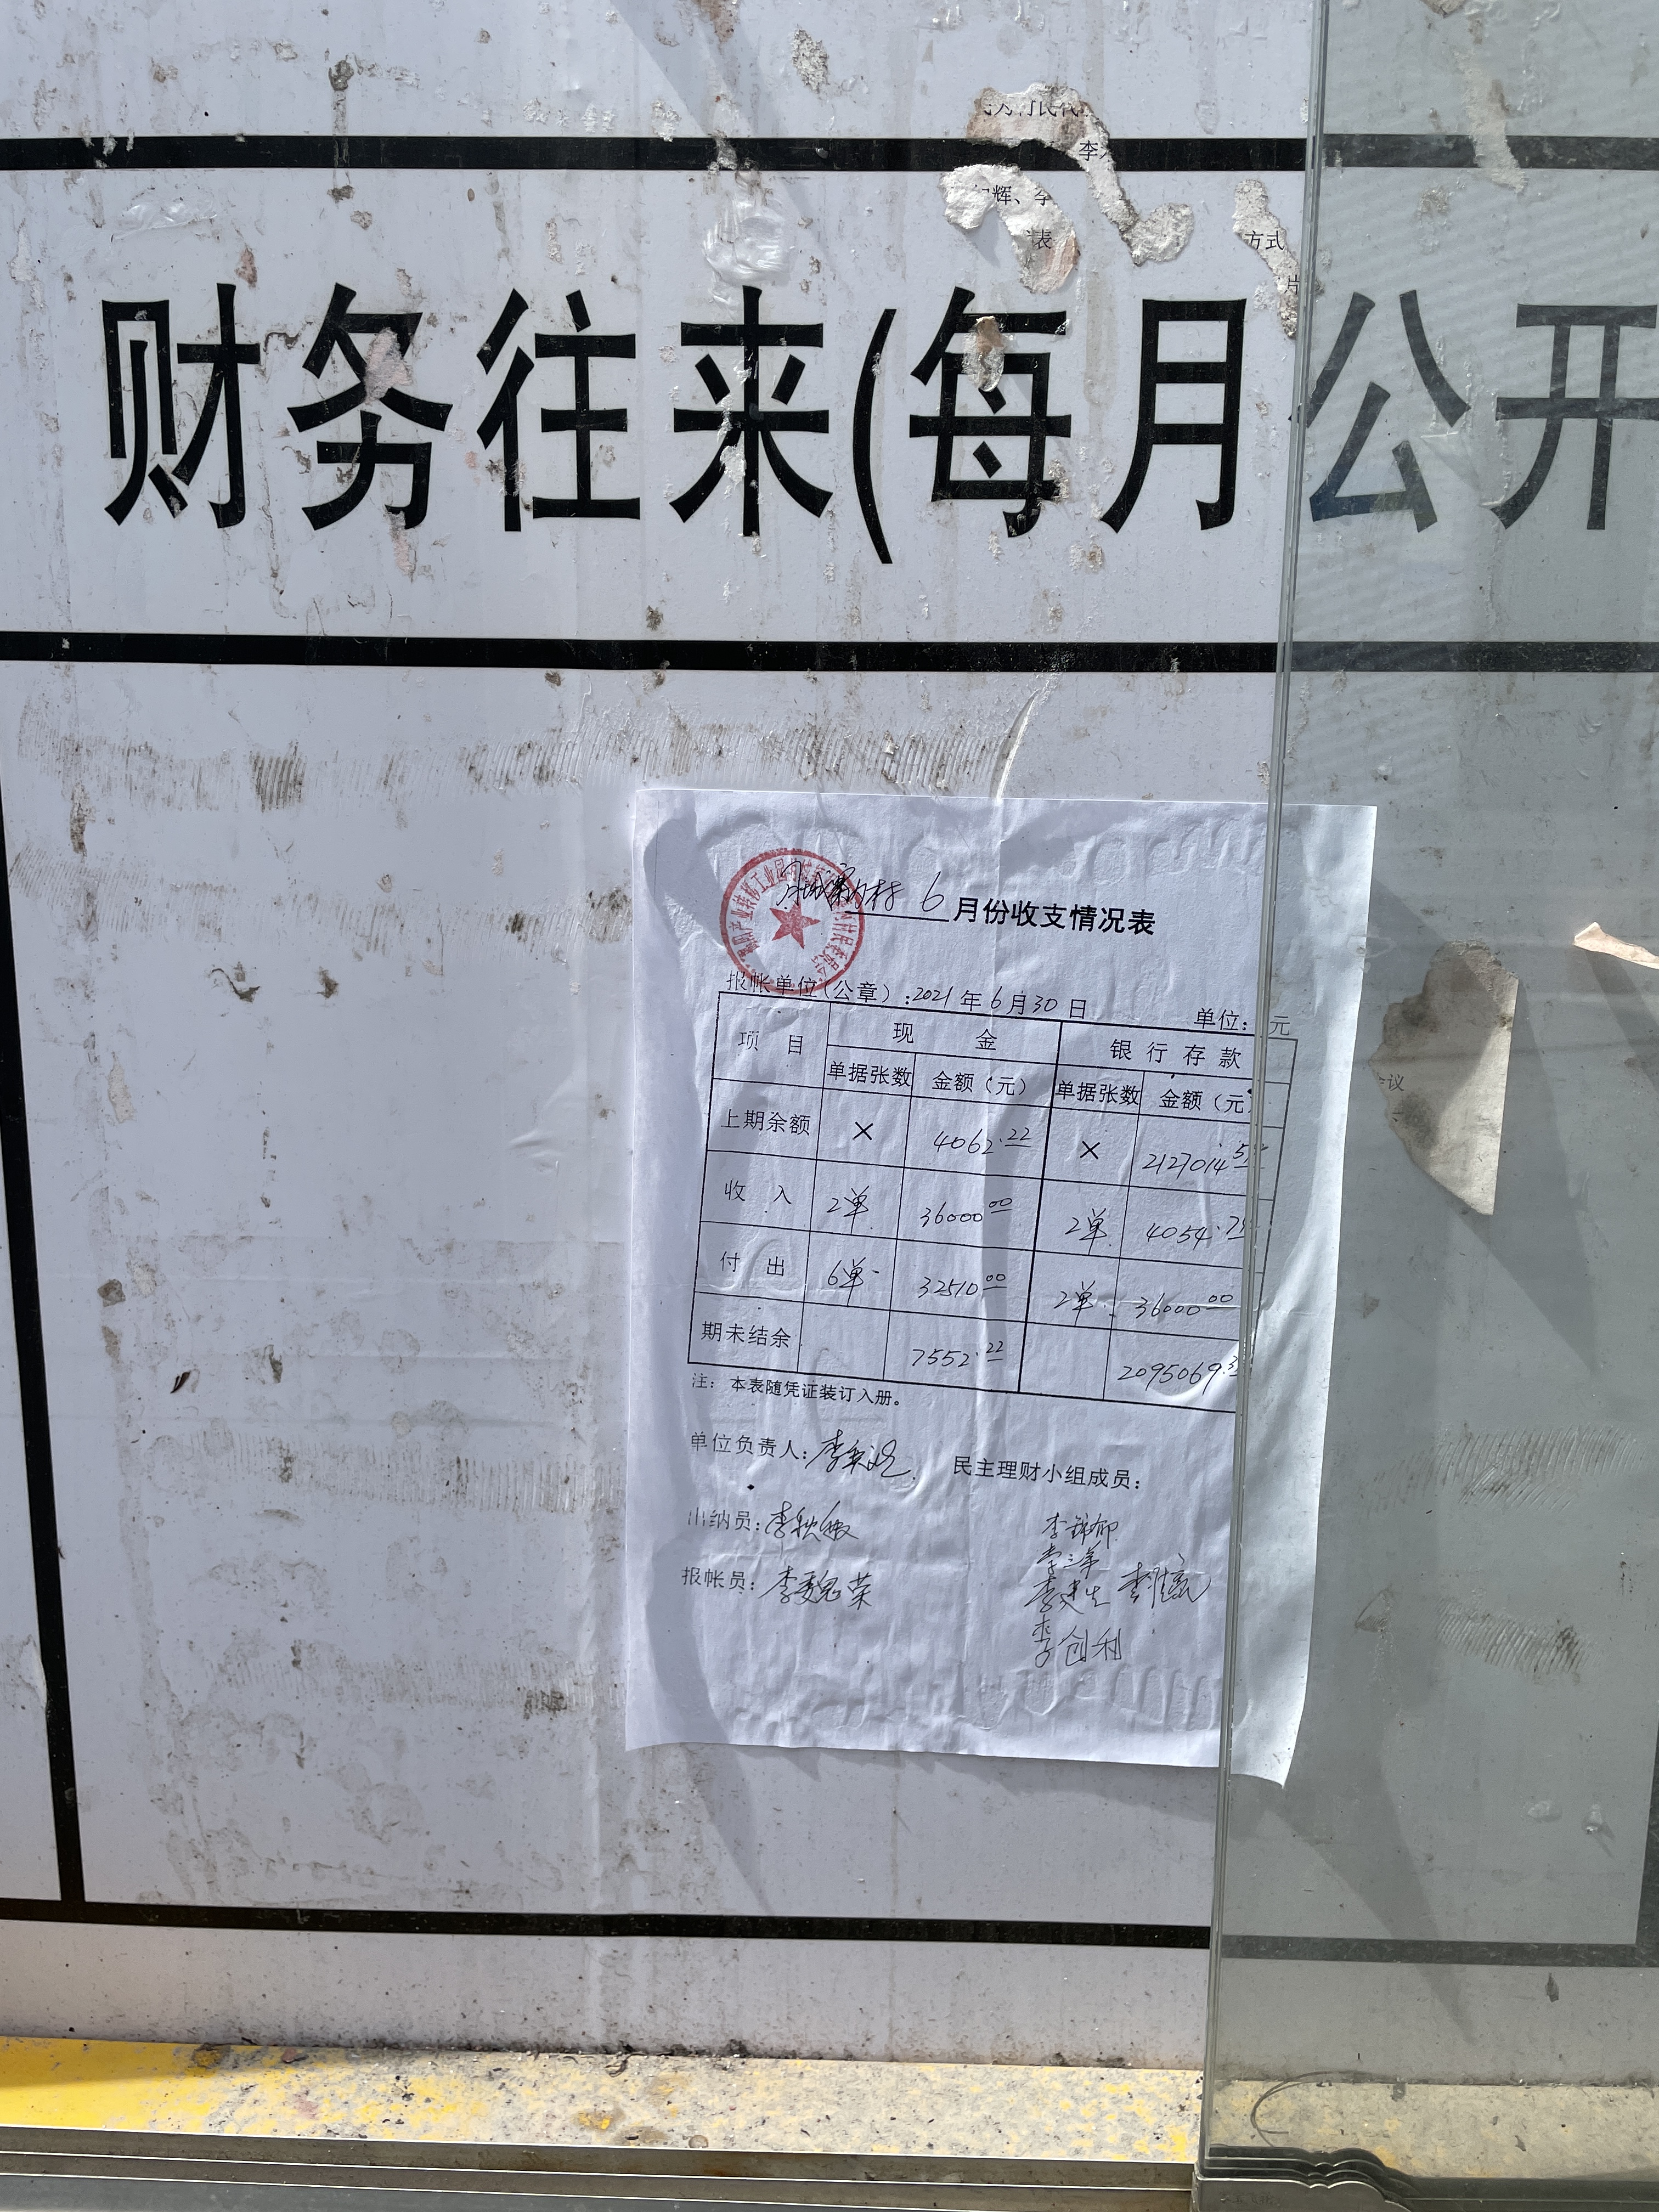 李
辉、李
表
方式
财务往来(每月公开
村 6 月份收支情况表
报帐单位(公章):2021年6月30日 单位:元
项目 现金 银行存款
单据张数 金额(元) 单据张数 金额(元
上期余额 × 4062.22 × 2127014.5
收入 2单 36000.00 2单 4054.7
付出 6单 32510.00 2单 36000.00
期末结余 7552.22 2095069.3
注:本表随凭证装订入册。
单位负责人:李 民主理财小组成员:
出纳员:李秋敏 李锦郁
李三革
报帐员:李魏荣 李建生 李
李创利
议